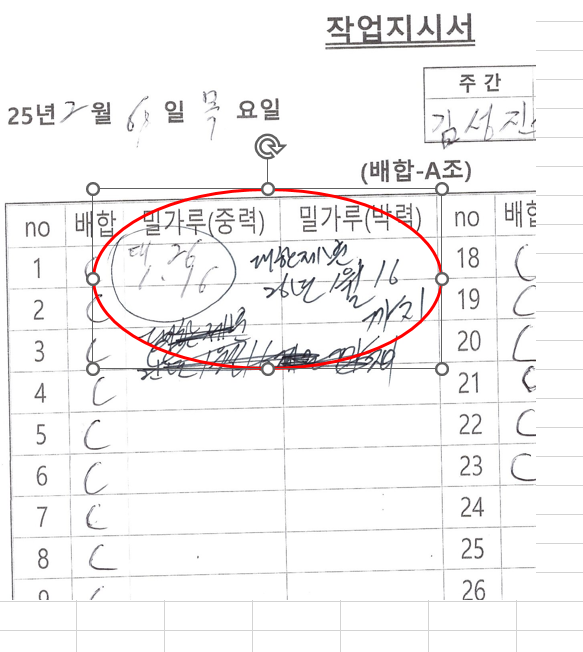 작업지시서
주 간
25년 2월 6일 목 요일
김성진
(배합-A조)
no 배합 밀가루(중력) 밀가루(박력) no 배합
1 C 26 대한제분 18 C
1. 16 26년 1월 16
2 C 까지 19 C
3 C 20 C
4 C 21 C
5 C 22 C
6 C 23 C
7 C 24
8 C 25
9 26